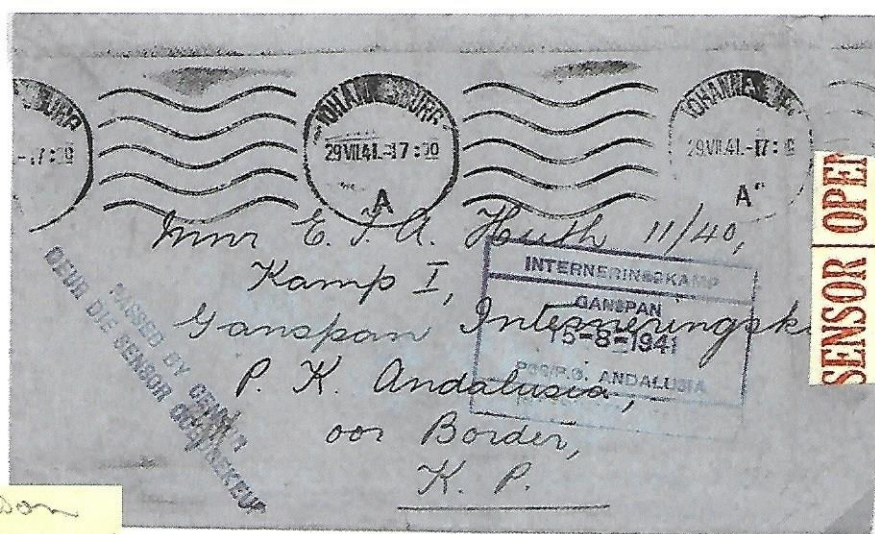 JOHANNESBURG
29 VII 41.-17:00
A
JOHANNESBURG
29 VII 41.-17:
A
-17:30
Mnr E. J. A. Huth 11/40,
Kamp I,
Ganspan Interneringsk
P. K. Andalusia,
oor Border,
K. P.
INTERNERINGSKAMP
GANSPAN
15-8-1941
POS/P.O. ANDALUSIA
PASSED BY CENSOR
DEUR DIE SENSOR GOEDGEKEUR
SENSOR OPEN